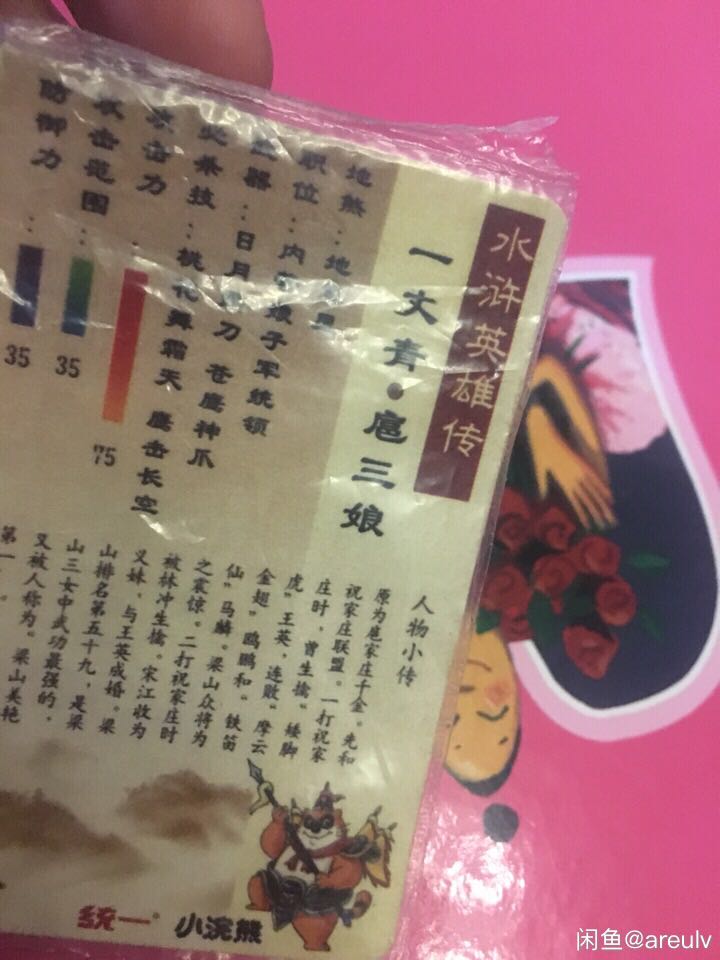 水浒英雄传
一丈青·扈三娘
地煞：地
职位：内 娘子军统领
器：日月 刀 苍鹰神爪
技：桃花舞霜天 鹰击长空
攻击力：75
攻击范围：35
防御力：35
人物小传
原为扈家庄千金。先和
祝家庄联盟。一打祝家
庄时，曾生擒“矮脚
虎”王英，连败“摩云
金翅”鸥鹏和“铁笛
仙”马麟。梁山众将为
之震惊。二打祝家庄时
被林冲生擒。宋江收为
义妹，与王英成婚。梁
山排名第五十九，是梁
山三女中武功最强的，
又被人称为“梁山美艳
第一”。
统一 小浣熊
闲鱼@areulv